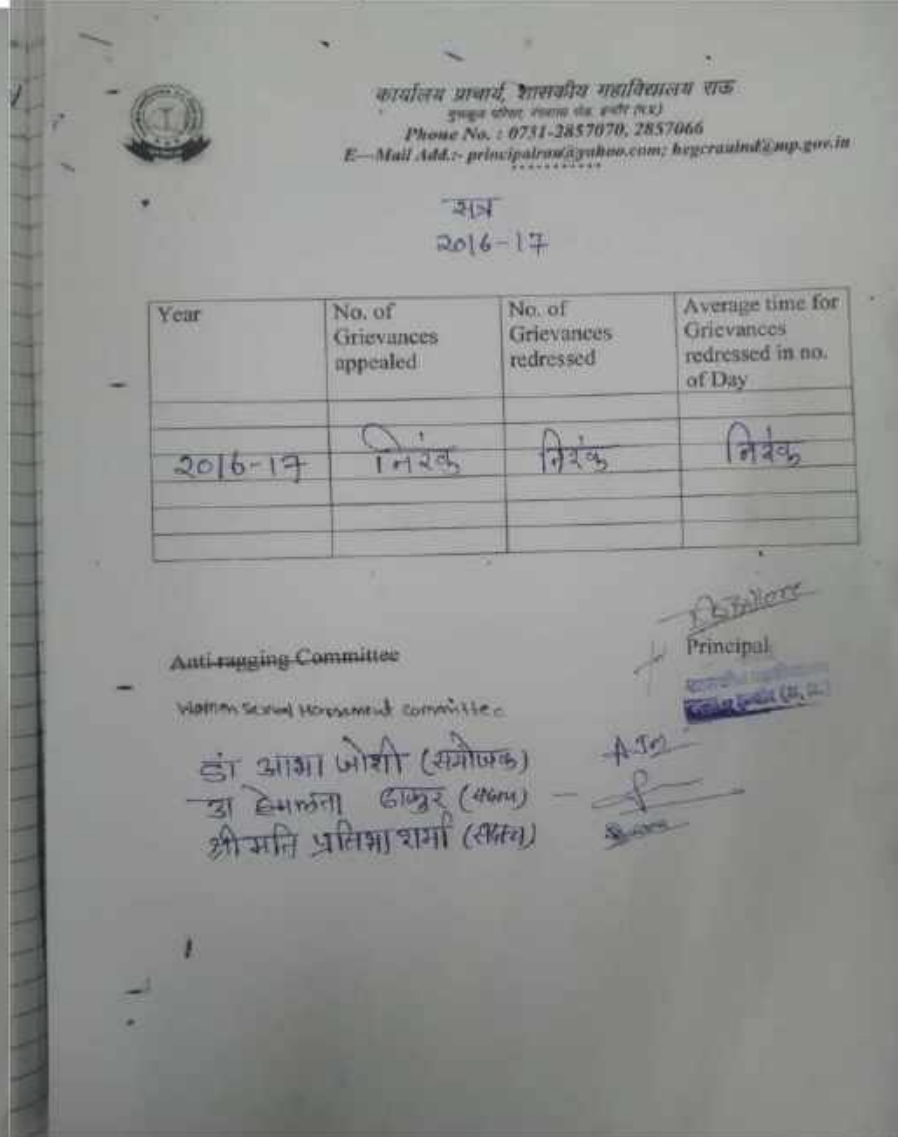 कार्यालय प्राचार्य, शासकीय महाविद्यालय राऊ
Phone No. : 0731-2857070, 2857066
E—Mail Add.:- principalrau@yahoo.com; hegcrauind@mp.gov.in
***********
सत्र
2016-17
Year No. of Grievances appealed No. of Grievances redressed Average time for Grievances redressed in no. of Day
2016-17 निरंक निरंक निरंक
Principal
Anti-ragging Committee
Women Sexual Harassment Committee
डॉ आभा जोशी (संयोजक)
डा हेमलता ठाकुर (सदस्य)
श्रीमति प्रतिभा शर्मा (सदस्य)